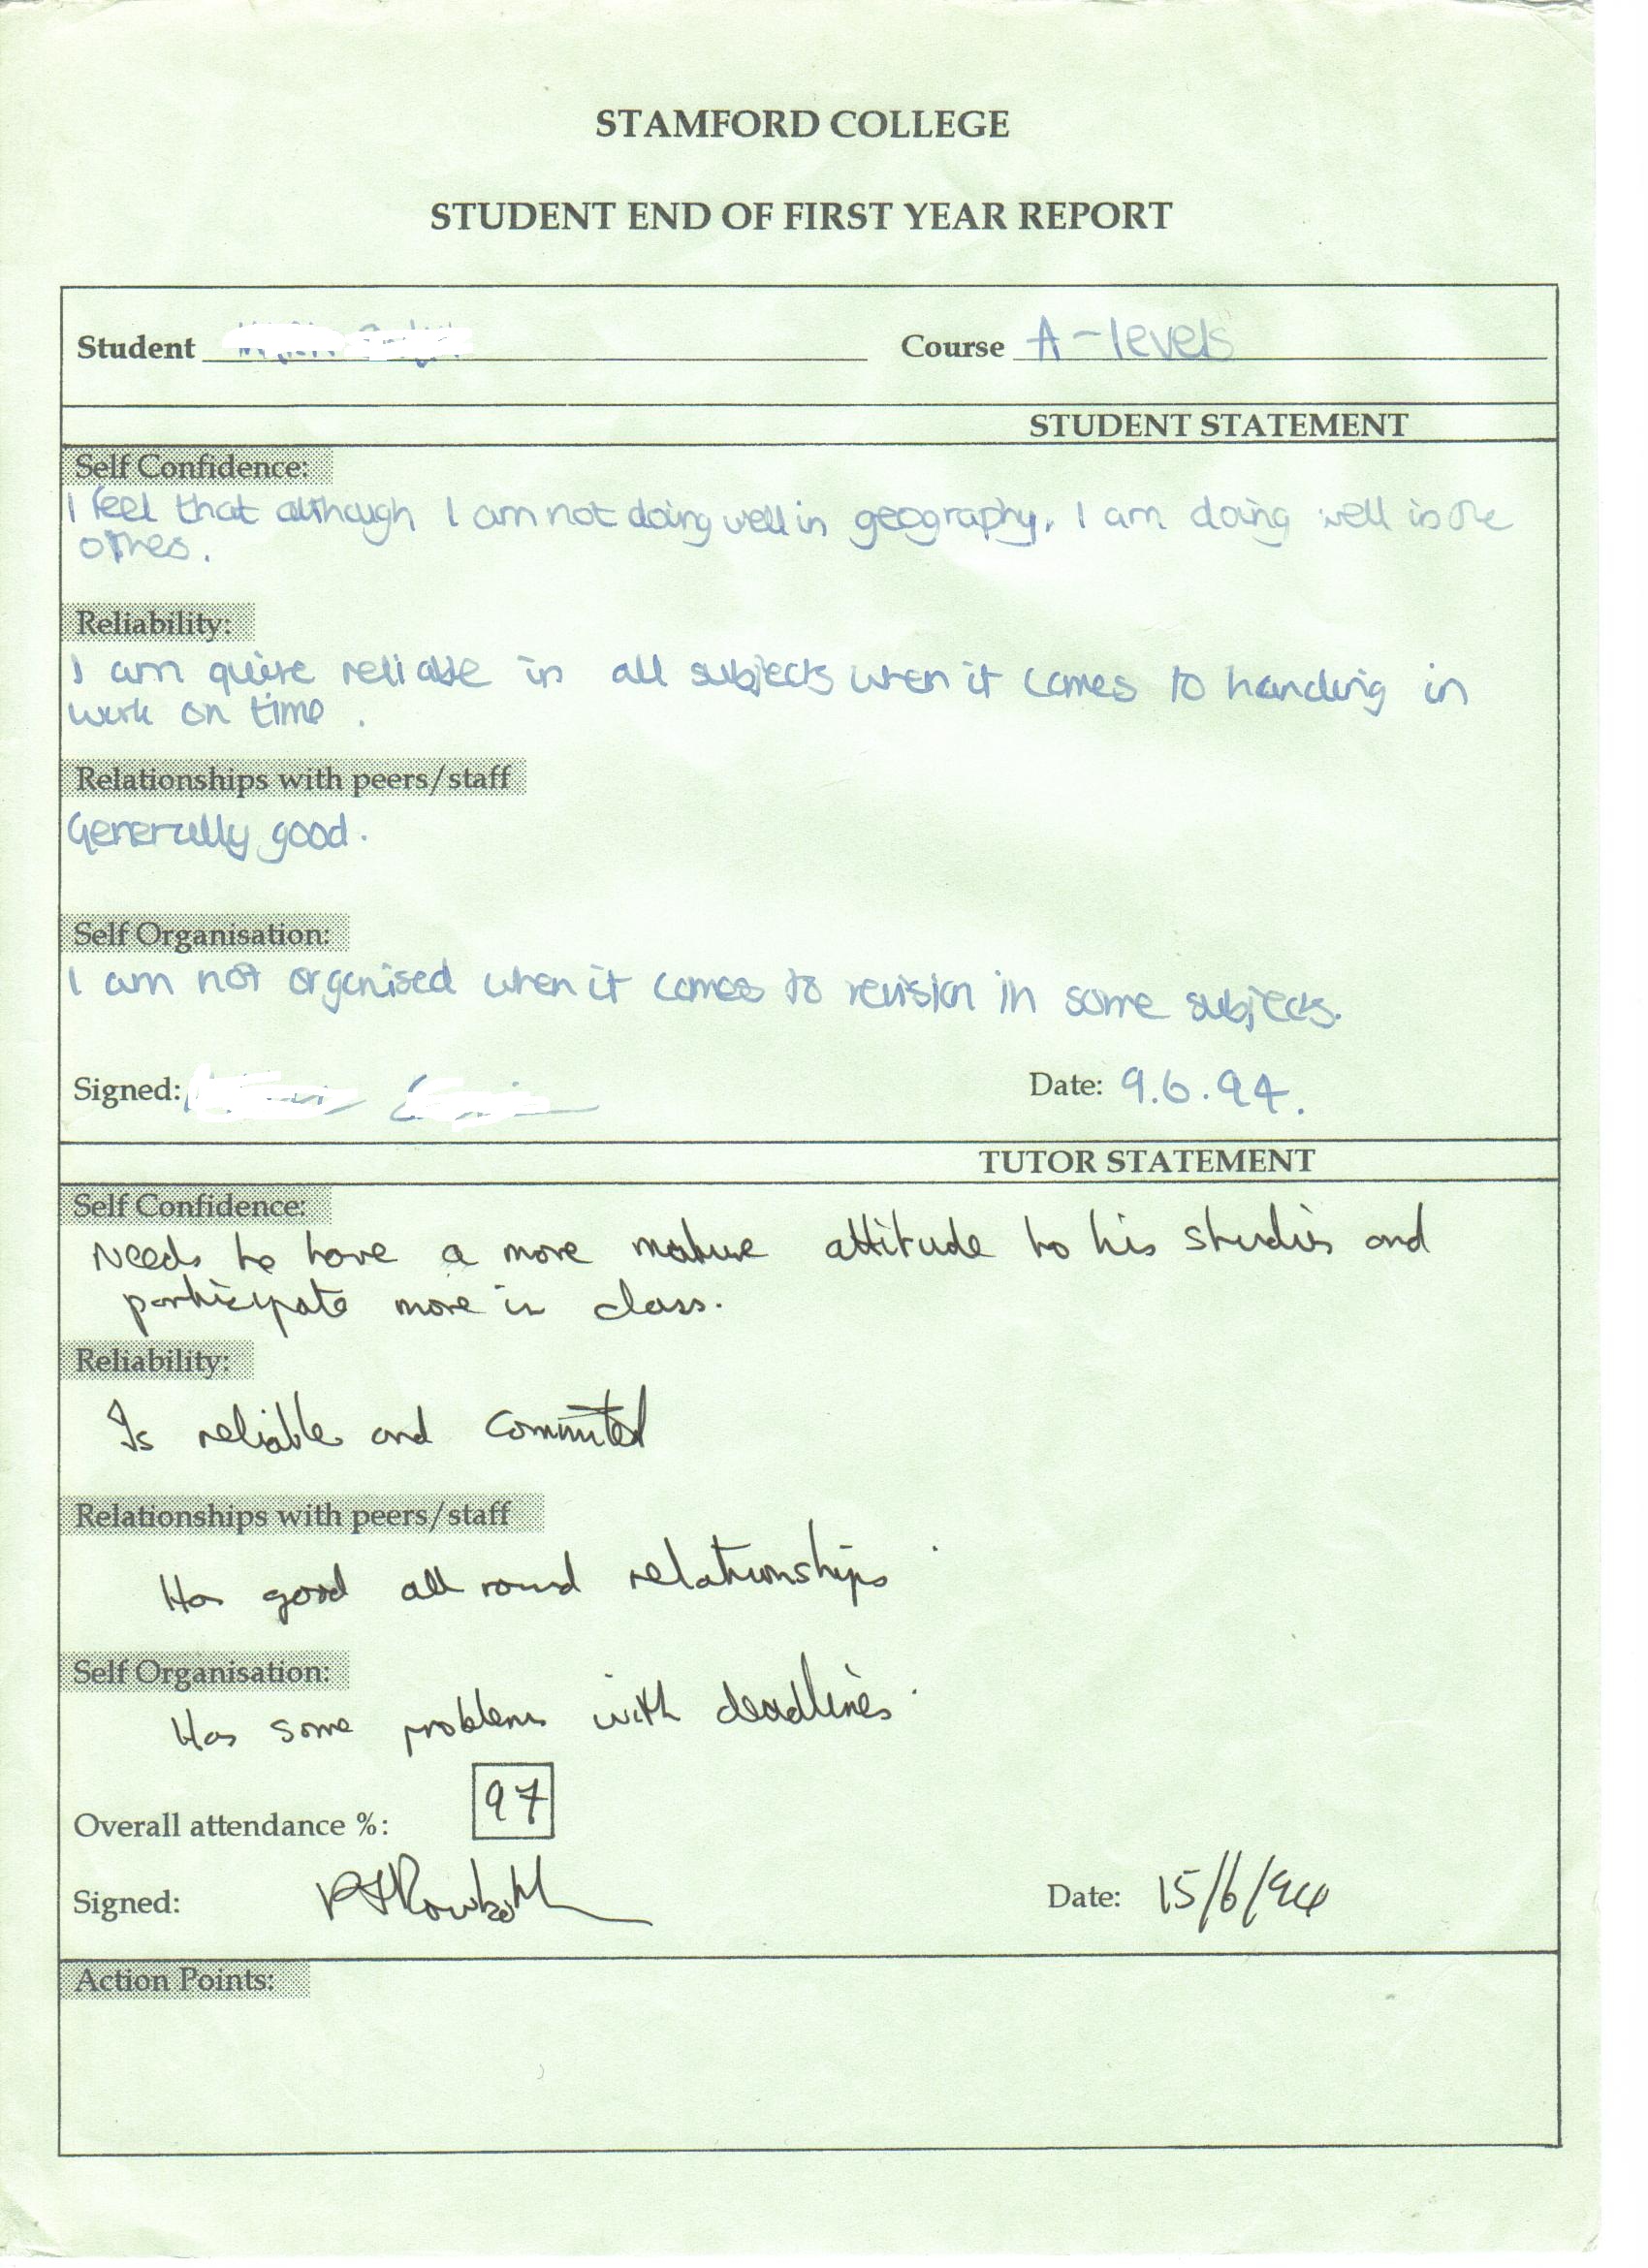 STAMFORD COLLEGE
STUDENT END OF FIRST YEAR REPORT
Student Course A-levels
STUDENT STATEMENT
Self Confidence:
I feel that although I am not doing well in geography, I am doing well in the
others.
Reliability:
I am quite reliable in all subjects when it comes to handing in
work on time.
Relationships with peers/staff
Generally good.
Self Organisation:
I am not organised when it comes to revision in some subjects.
Signed: Date: 9.6.94.
TUTOR STATEMENT
Self Confidence:
Needs to have a more mature attitude to his studies and
participate more in class.
Reliability:
Is reliable and committed
Relationships with peers/staff
Has good all round relationships.
Self Organisation:
Has some problems with deadlines.
Overall attendance %: 97
Signed: Date: 15/6/94
Action Points: